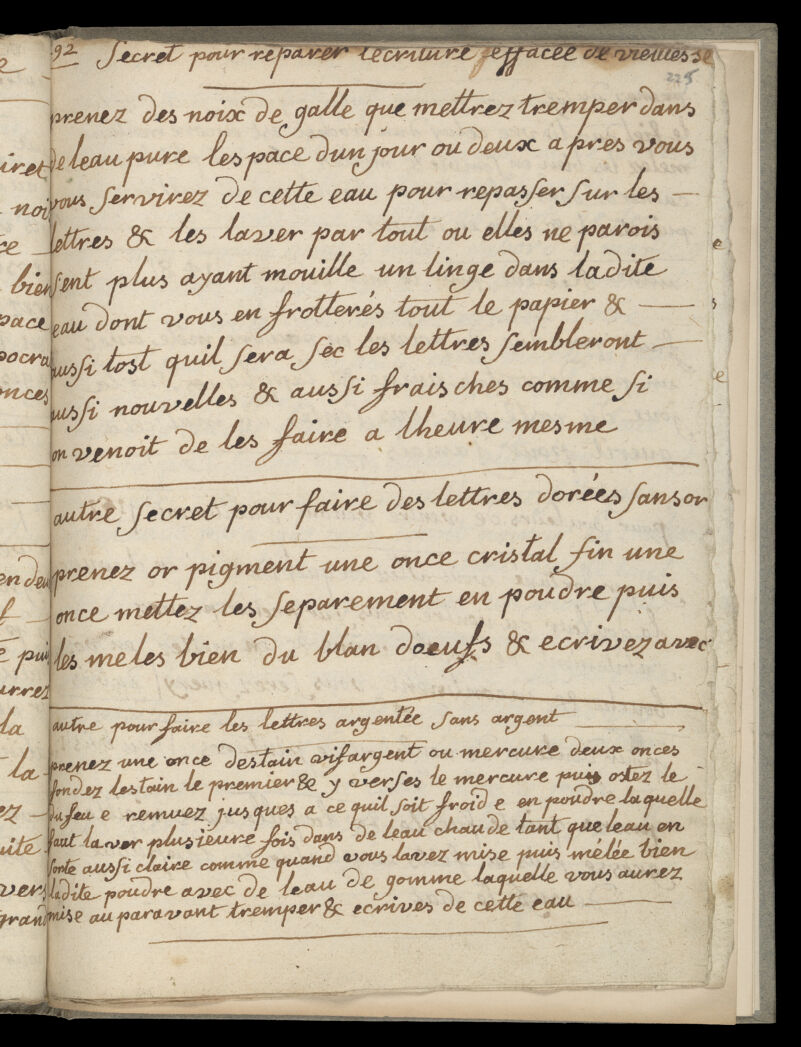 92 Secret pour reparer lecriture effacée de vieillesse
225
prenez des noix de galle que mettrez tremper dans
de leau pure lespace dun jour ou deux apres vous
vous servirez de cette eau pour repasser sur les
lettres & les laver par tout ou elles ne parois
sent plus ayant mouille un linge dans ladite
eau dont vous en frotterés tout le papier &
aussi tost quil sera sec les lettres sembleront
aussi nouvelles & aussi fraisches comme si
on venoit de les faire a lheure mesme
autre secret pour faire des lettres dorées sans or
prenez or pigment une once cristal fin une
once mettez les separement en poudre puis
les meles bien du blan doeufs & ecrivez avec
autre pour faire les lettres argentée sans argent
prenez une once destain vifargent ou mercure deux onces
fondez lestain le premier & y verses le mercure puis ostez le
du feu e remuez jusques a ce quil soit froid e en poudre laquelle
faut laver plusieure fois dans de leau chaude tant que leau en
sorte aussi claire comme quand vous lavez mise puis mélée bien
ladite poudre avec de leau de gomme laquelle vous aurez
mise au paravant tremper & ecrives de cette eau